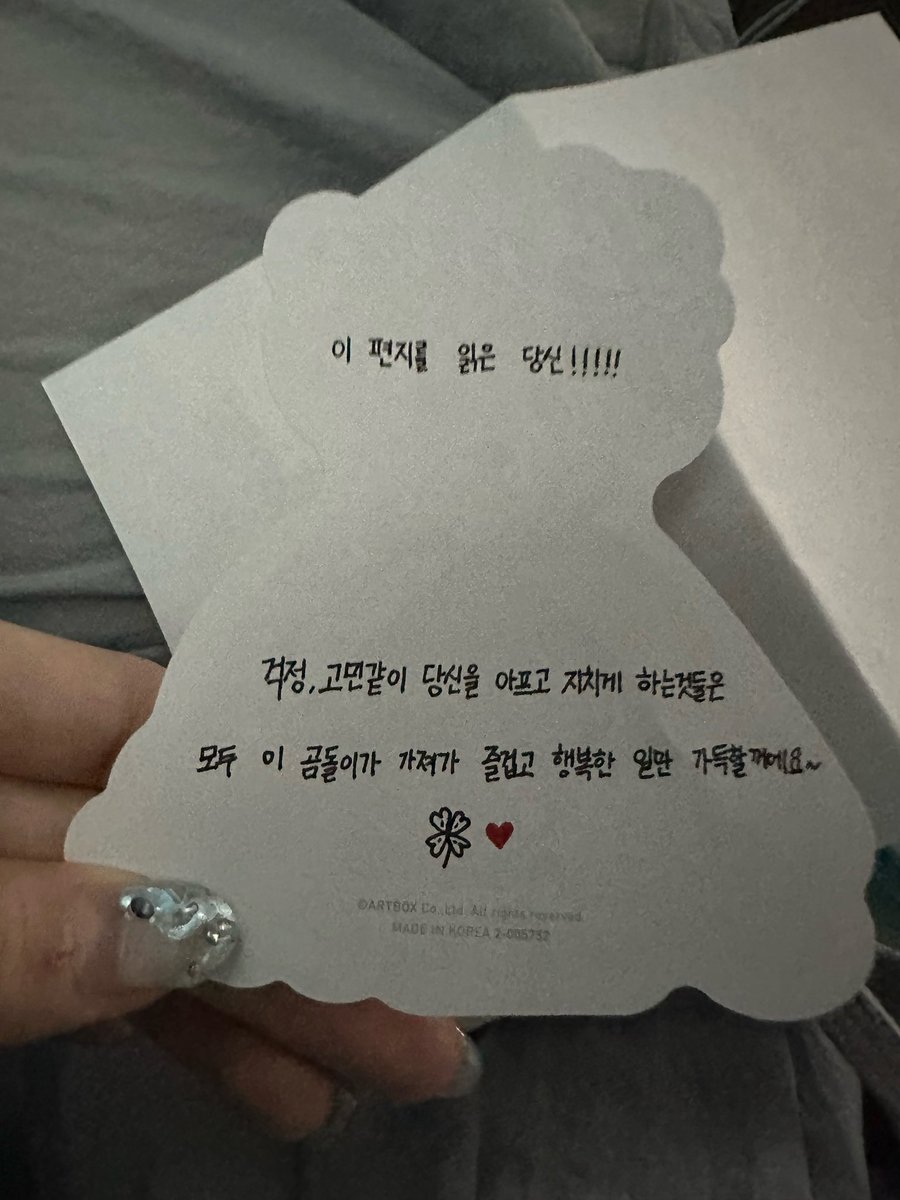 이 편지를 읽은 당신!!!!!
걱정, 고민같이 당신을 아프고 지치게 하는것들은
모두 이 곰돌이가 가져가 즐겁고 행복한 일만 가득할꺼예요~
©ARTBOX Co., Ltd. All rights reserved.
MADE IN KOREA